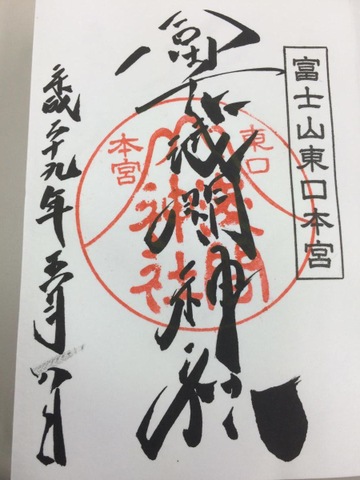 富士山東口本宮
冨士浅間神社
東口
本宮
淺間
神社
平成二十九年五月八日